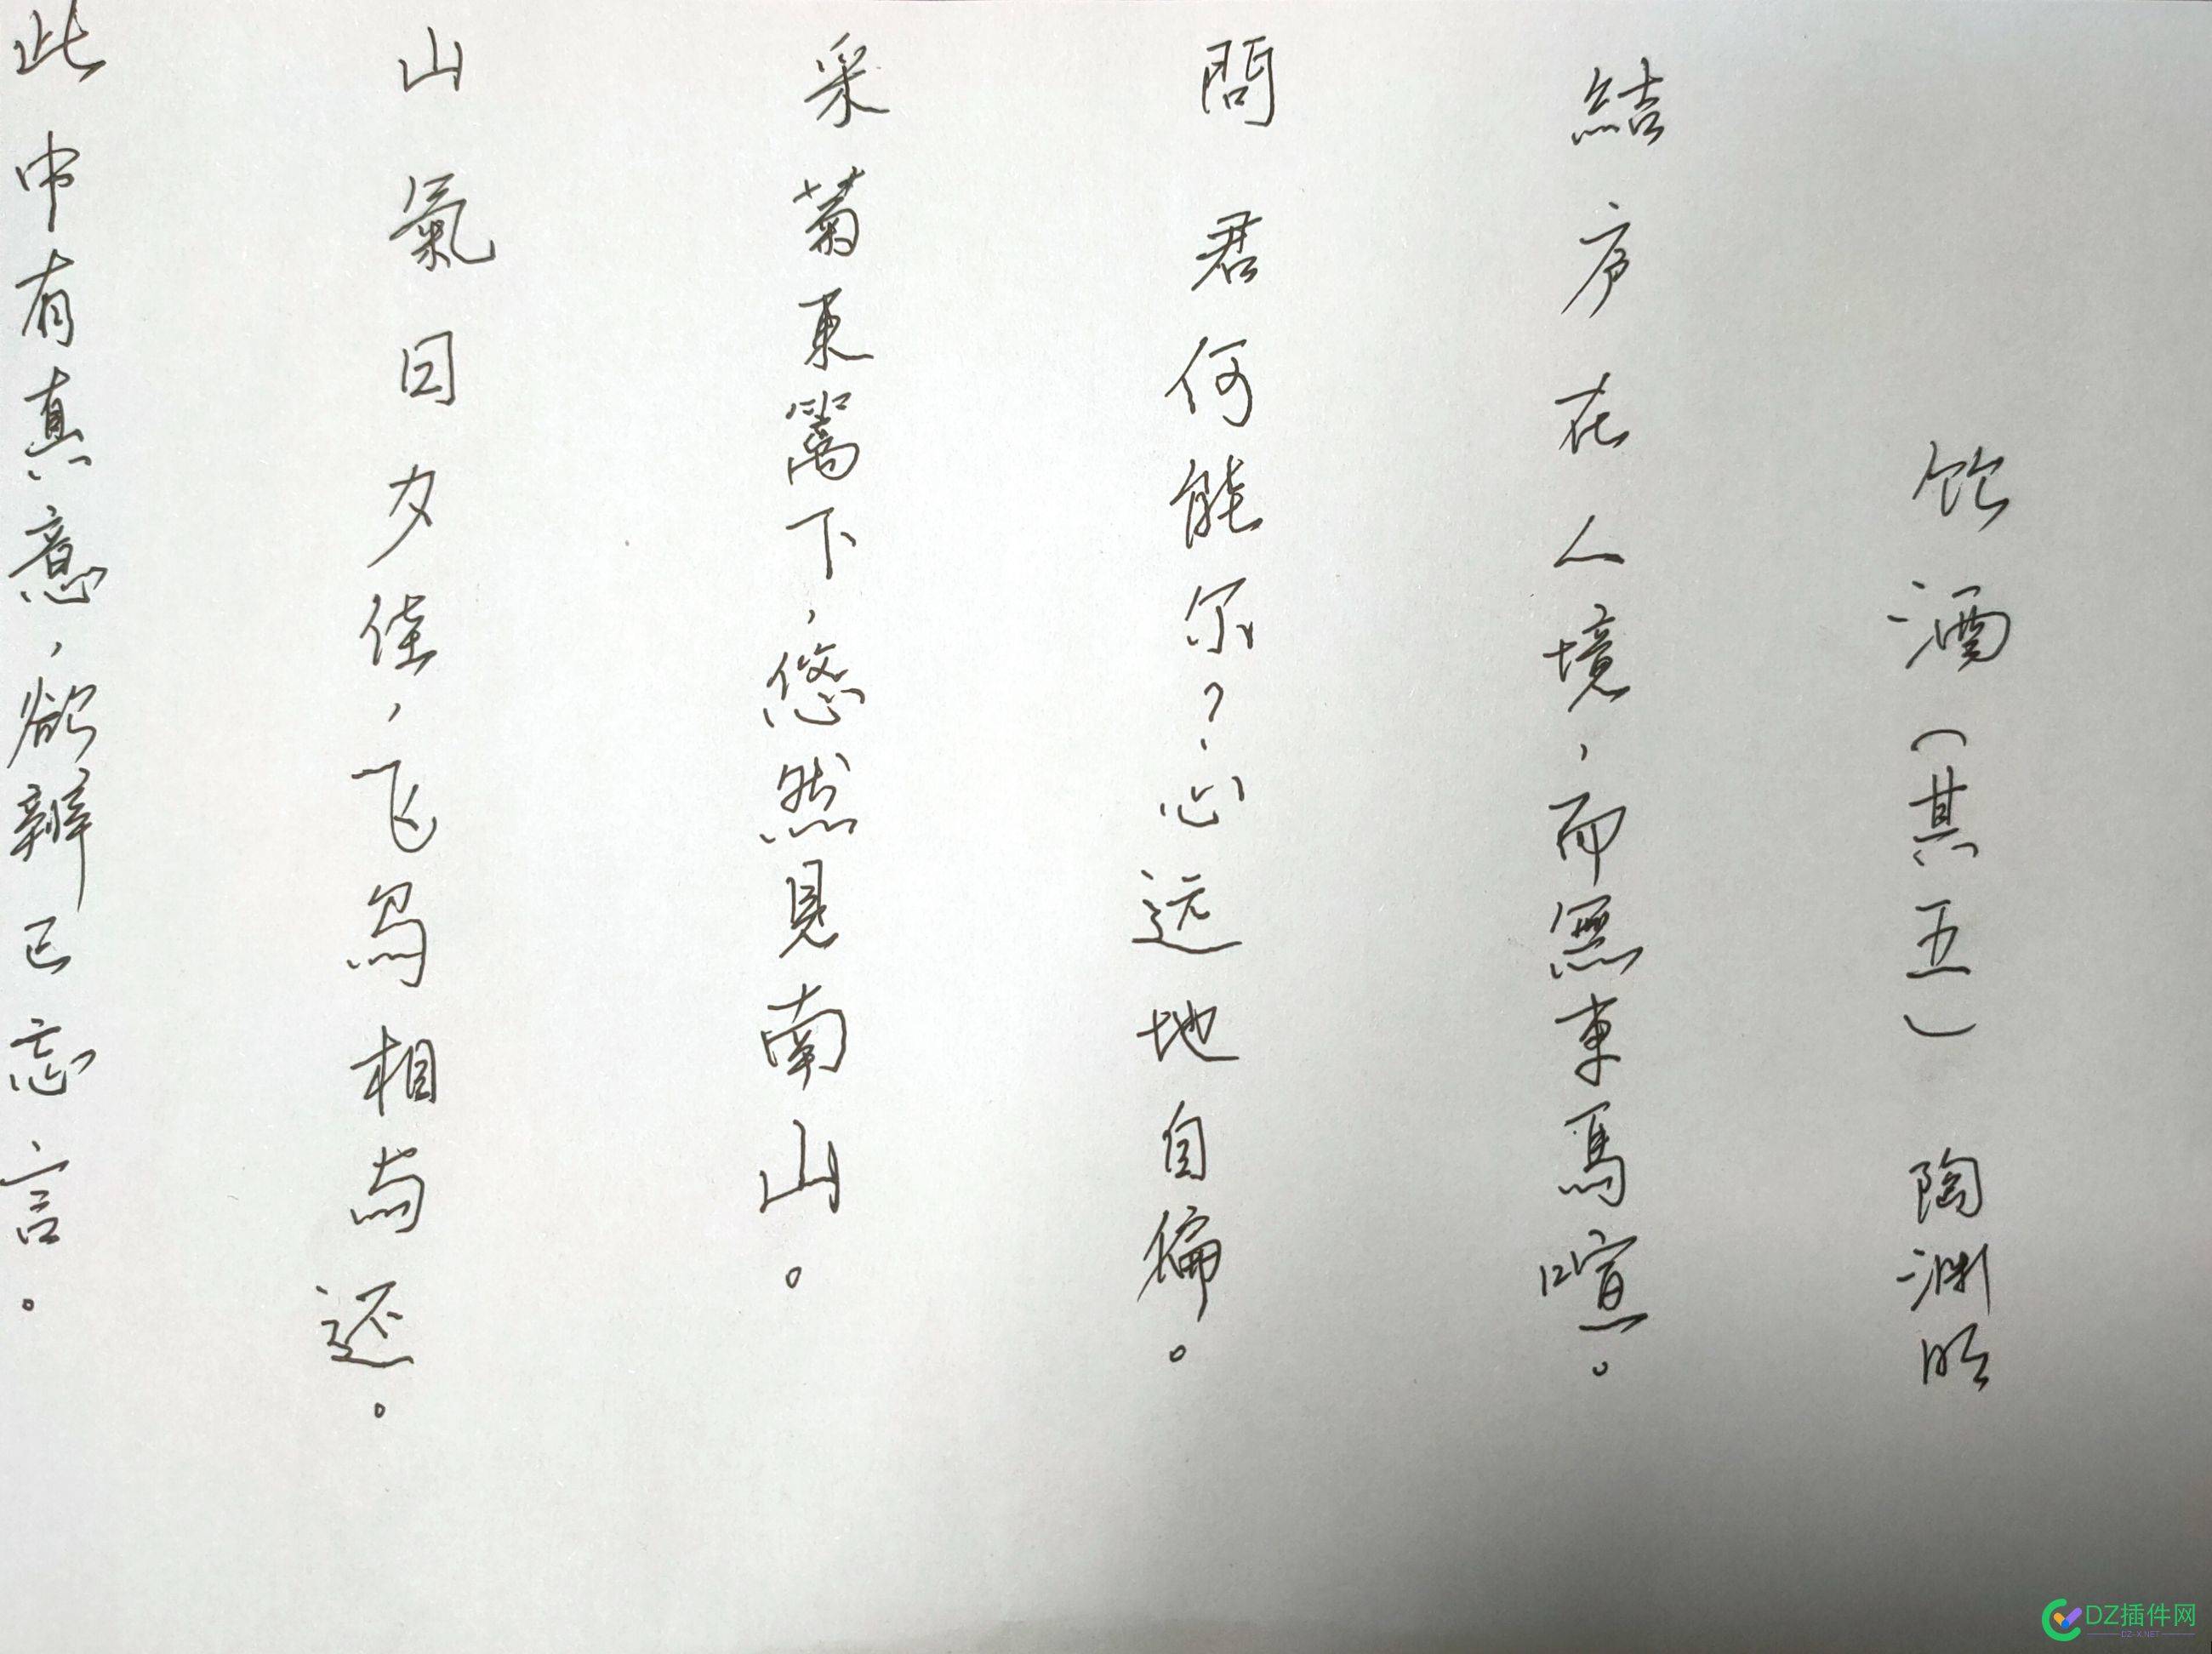 饮酒（其五） 陶渊明
結庐在人境，而無車馬喧。
問君何能尔？心远地自偏。
采菊東篱下，悠然見南山。
山氣日夕佳，飞鸟相与还。
此中有真意，欲辨已忘言。
DZ插件网
DZ-X.NET